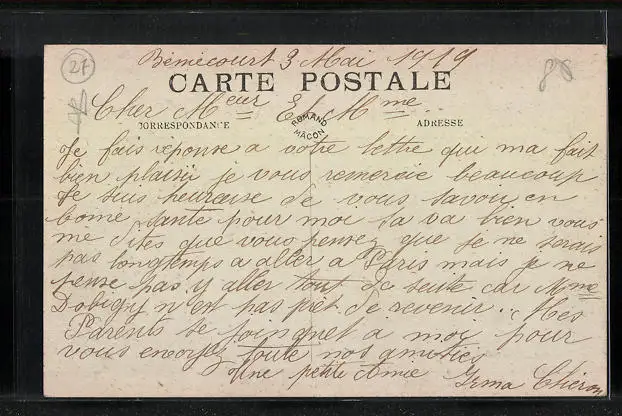 27
Bémécourt 3 Mai 1919
88
CARTE POSTALE
Cher Meur Et Mme
CORRESPONDANCE
ROMAND MÂCON
ADRESSE
Je fais réponse a votre lettre que ma fait
bien plaisir je vous remercie beaucoup
Je suis heureuse de vous savoir en
bonne santé pour moi sa va bien vous
me dites que vous pensez que je ne serais
pas longtemps a aller a Paris mais je ne
pense pas y aller tout de suite car Mme
Dobigny n'est pas prêt de revenir. Mes
Parents se joingnet a moi pour
vous envoyez toute nos amitiés
Une petite Amie Irma Chéron